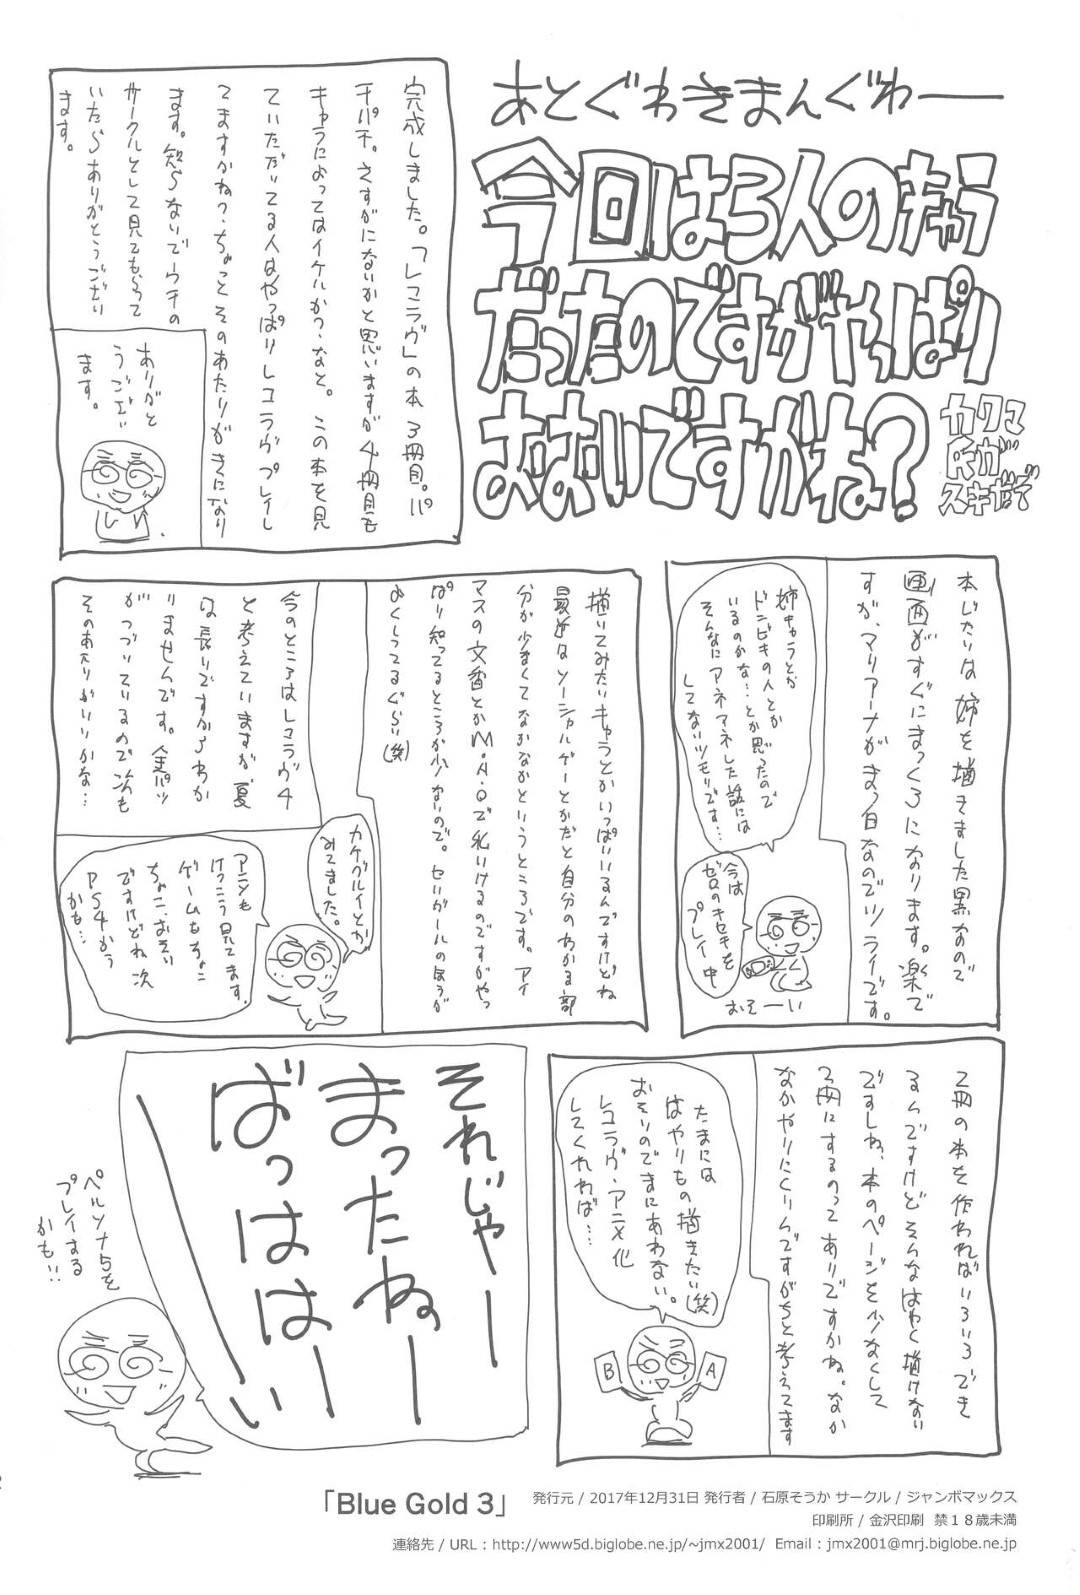 あとぐわきまんぐわー
今回は3人のキャラ
だったのですがやっぱり
おおいですかね?
カワマ
スキだで
完成しました。「レコラヴ」の本3冊目。パ
チパチ。さすがにないかと思いますが4冊目も
キャラによってはイケルか?なと。この本を見
ていただいてる人はやっぱりレコラヴプレイし
てますかね?ちょっとそのあたりがきになり
ます。知らないでウチの
サークルとして見てもらって
いたらありがとうござい
ます。
ありがと
うござい
ます。
本じたいは姉を描きました黒なので
画面がすぐにまっくろになります。楽で
すが、マリアーナがまっ白なのでツライです。
姉キャラとか
ドンビキの人とか
いるのかな…とか思ったので
そんなにアネアネした話には
してないツモリです…
今は
ゼロのキセキを
プレイ中
おそーい
描いてみたいキャラとかいっぱいいるんですけどね
最近はソーシャルゲーとかだと自分のわかる部
分が少なくてなかなかというところです。アイ
マスの文香とかM・A・Qで私いけるのですがやっ
ぱり知ってるところが少ないので。セいガールのほうが
よくしってるぐらい(笑)
カケグルイとか
みてました。
今のところはレコラヴ4
と考えていますが夏
は長いですからわか
りませんです。金パツ
がつづいているので次も
そのあたりがいいかな…
アニメも
けっこう見てます。
ゲームもちょこ
ちょこ、おそい
ですけどね次
PS4かう
かも…
2冊の本を作ればいろいろでき
るんですけどそんなはやく描けない
ですしね、本のページを少なくして
2冊にするのってありですかね。なか
なかやりにくいんですがちと考えてます
たまには
はやりもの描きたい(笑)
おそいのでまにあわない。
レコラヴ・アニメ化
してくれれば…
B
A
それじゃー
まったねー
ばっははーい
ペルソナ5を
プレイする
かも!!
「Blue Gold 3」
発行元 / 2017年12月31日 発行者 / 石原そうか サークル / ジャンボマックス
印刷所 / 金沢印刷 禁18歳未満
連絡先 / URL : http://www5d.biglobe.ne.jp/~jmx2001/ Email : jmx2001@mrj.biglobe.ne.jp